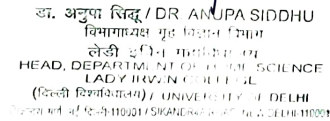 डा. अनुपा सिद्धू / DR ANUPA SIDDHU
विभागाध्यक्ष गृह विज्ञान विभाग
लेडी इर्विन
HEAD, DEPARTMENT OF HOME SCIENCE
LADY IRWIN COLLEGE
(दिल्ली विश्वविद्यालय) / UNIVERSITY OF DELHI
110001 / SIKANDRA DELHI-110001